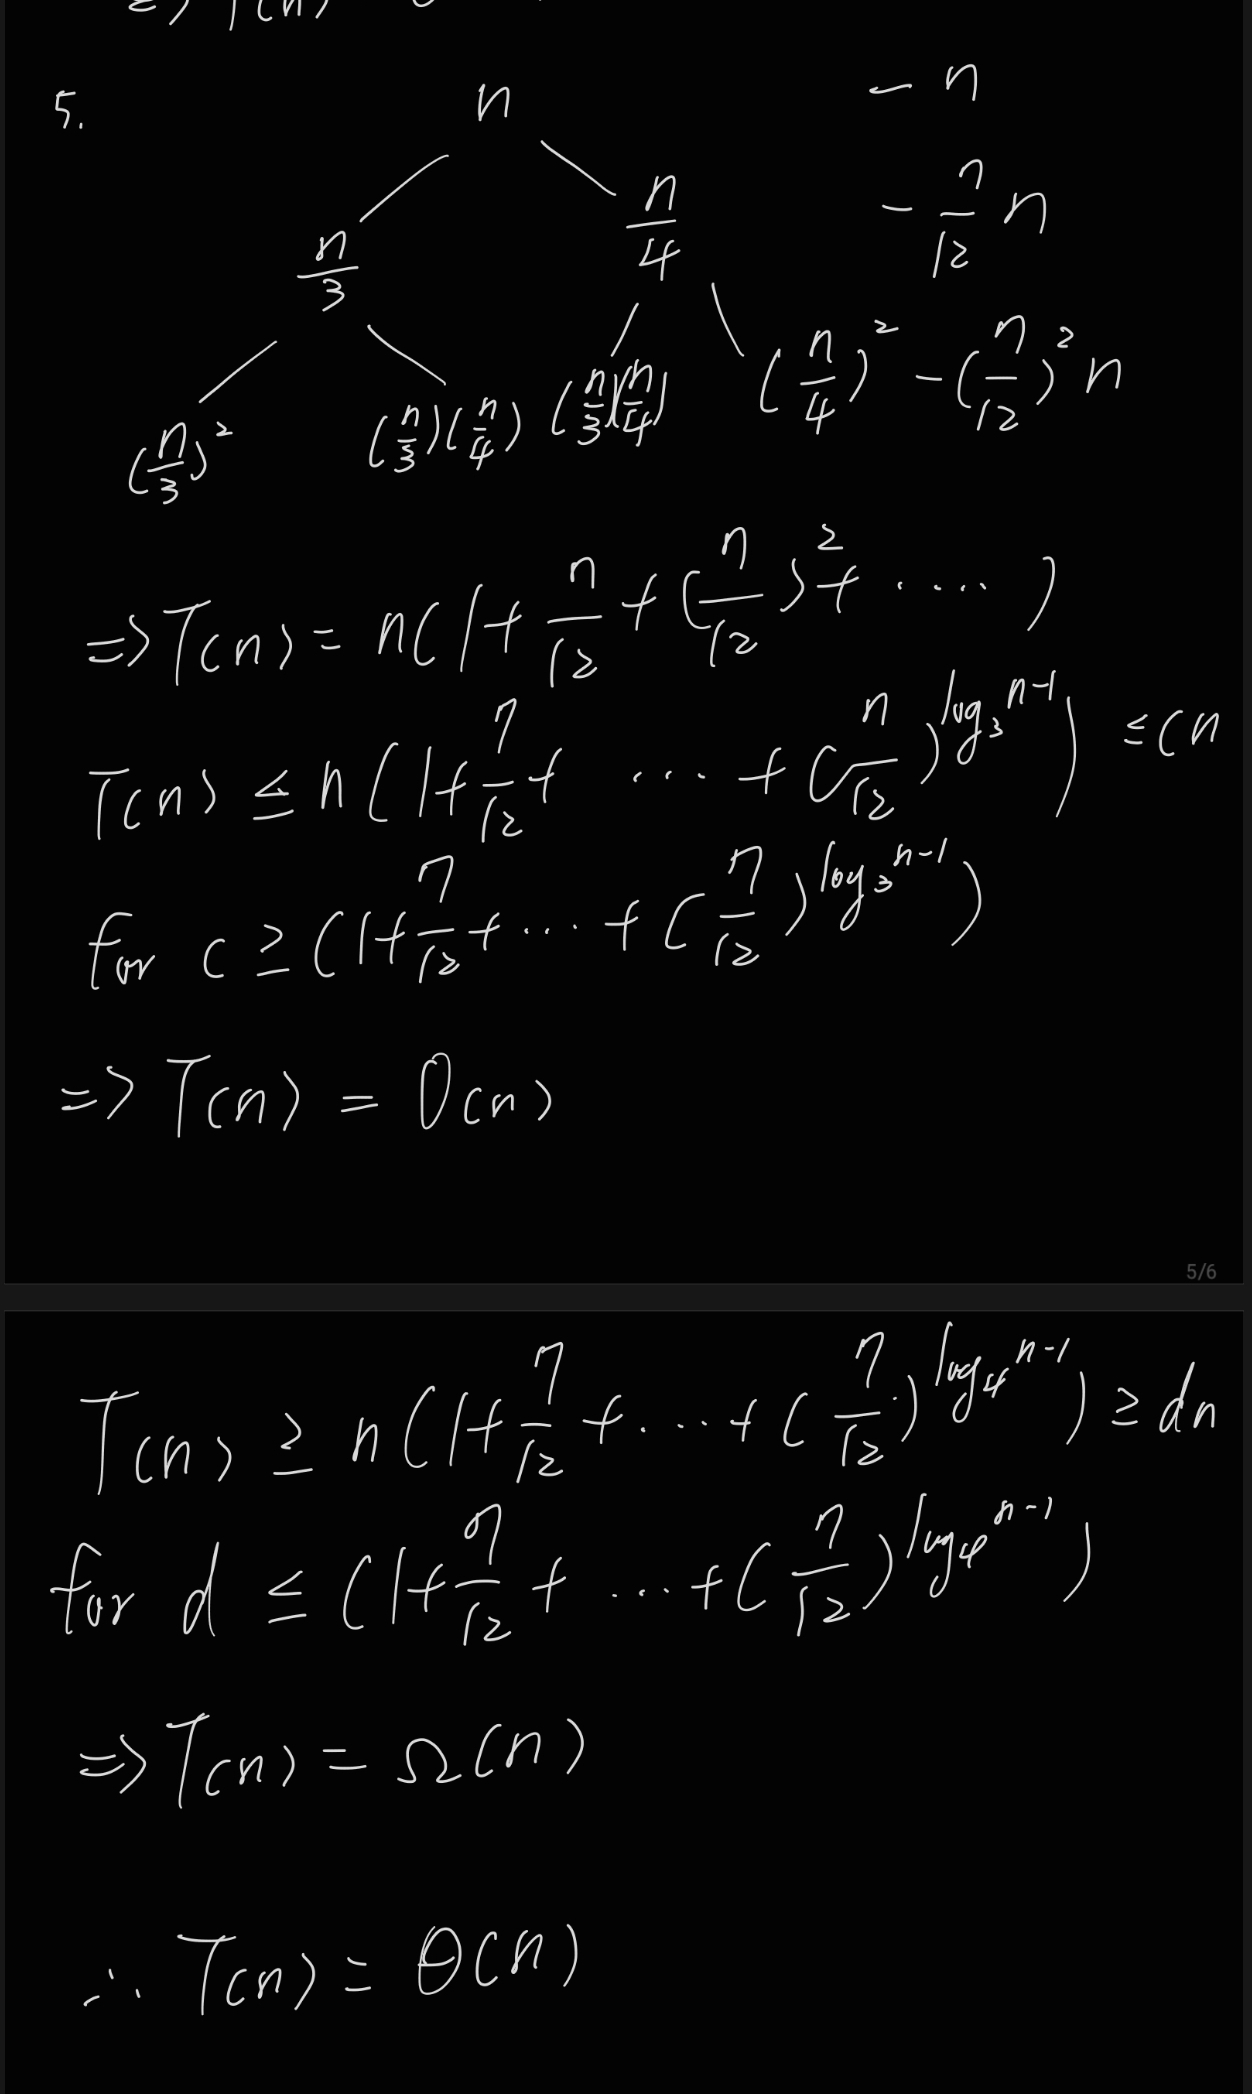 => T(n)
5.
n - n
n/3 n/4 - 7/12 n
(n/3)² (n/3)(n/4) (n/3)(n/4) (n/4)² - (7/12)² n
=> T(n) = n(1 + 7/12 + (7/12)² + ....)
T(n) ≤ n(1 + 7/12 + ... + (7/12)^log₃ⁿ⁻¹) ≤ cn
for c ≥ (1 + 7/12 + ... + (7/12)^log₃ⁿ⁻¹)
=> T(n) = O(n)
5/6
T(n) ≥ n(1 + 7/12 + ... + (7/12)^log₄ⁿ⁻¹) ≥ dn
for d ≤ (1 + 7/12 + ... + (7/12)^log₄ⁿ⁻¹)
=> T(n) = Ω(n)
∴ T(n) = Θ(n)